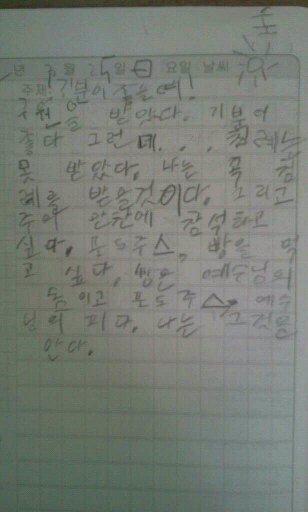 년 월 일 日 요일 날씨
주제: 기분이 좋을 때!
구원을 받았다. 기분이
좋다 그런데... 침례는
못 받았다. 나는 꼭 침
례를 받을것이다. 그리고
주의 만찬에 참석하고
싶다. 포도주스, 빵을 먹
고 싶다. 빵은 예수님의
몸이고 포도주스는 예수
님의 피다. 나는 그것을
안다.